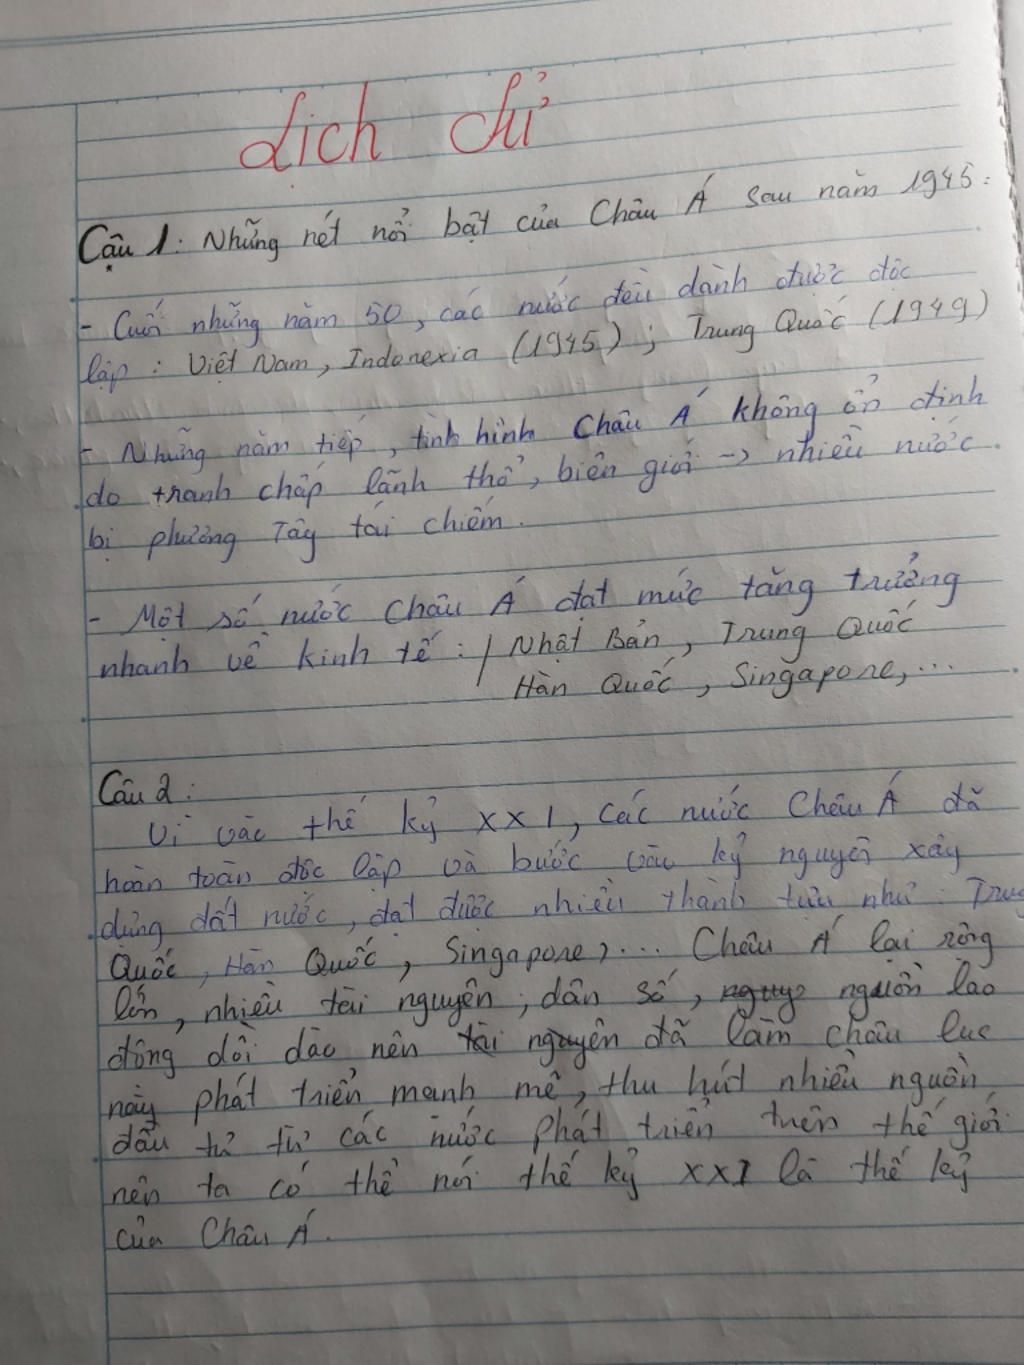 Lịch sử
Câu 1: Những nét nổi bật của Châu Á sau năm 1945:
- Cuối những năm 50, các nước đều dành được độc
lập: Việt Nam, Indonexia (1945); Trung Quốc (1949)
- Những năm tiếp, tình hình Châu Á không ổn định
do tranh chấp lãnh thổ, biên giới -> nhiều nước
bị phương Tây tái chiếm.
- Một số nước Châu Á đạt mức tăng trưởng
nhanh về kinh tế: / Nhật Bản, Trung Quốc
Hàn Quốc, Singapore,...
Câu 2:
Vì vào thế kỷ XXI, các nước Châu Á đã
hoàn toàn độc lập và bước vào kỷ nguyên xây
dựng đất nước, đạt được nhiều thành tựu như: Trung
Quốc, Hàn Quốc, Singapore,... Châu Á lại rộng
lớn, nhiều tài nguyên, dân số, nguồn lao
động dồi dào nên đã làm châu lục
này phát triển mạnh mẽ, thu hút nhiều nguồn
đầu tư từ các nước phát triển trên thế giới
nên ta có thể nói thế kỷ XXI là thế kỷ
của Châu Á.